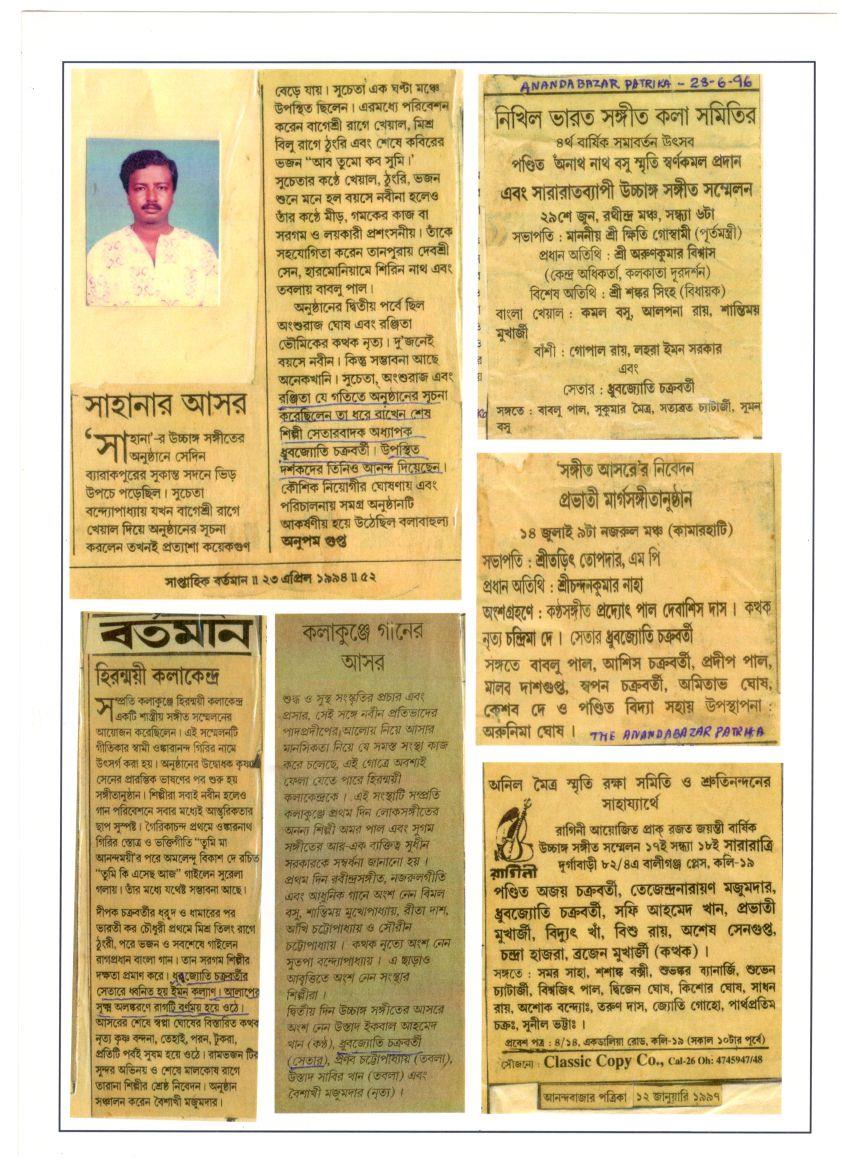 সাহানার আসর
‘সাহানা’-র উচ্চাঙ্গ সঙ্গীতের
অনুষ্ঠানে সেদিন
ব্যারাকপুরের সুকান্ত সদনে ভিড়
উপচে পড়েছিল। সুচেতা
বন্দ্যোপাধ্যায় যখন বাগেশ্রী রাগে
খেয়াল দিয়ে অনুষ্ঠানের সূচনা
করলেন তখনই প্রত্যাশা কয়েকগুণ
বেড়ে যায়। সুচেতা এক ঘণ্টা মঞ্চে
উপস্থিত ছিলেন। এরমধ্যে পরিবেশন
করেন বাগেশ্রী রাগে খেয়াল, মিশ্র
বিলু রাগে ঠুংরি এবং শেষে কবিরের
ভজন “আব তুমো কব সুমি।’
সুচেতার কণ্ঠে খেয়াল, ঠুংরি, ভজন
শুনে মনে হল বয়সে নবীনা হলেও
তাঁর কণ্ঠে মীড়, গমকের কাজ বা
সরগম ও লয়কারী প্রশংসনীয়। তাঁকে
সহযোগিতা করেন তানপুরায় দেবশ্রী
সেন, হারমোনিয়ামে শিরিন নাথ এবং
তবলায় বাবলু পাল।
অনুষ্ঠানের দ্বিতীয় পর্বে ছিল
অংশুরাজ ঘোষ এবং রঞ্জিতা
ভৌমিকের কথক নৃত্য। দু’জনেই
বয়সে নবীন। কিন্তু সম্ভাবনা আছে
অনেকখানি। সুচেতা, অংশুরাজ এবং
রঞ্জিতা যে গতিতে অনুষ্ঠানের সূচনা
করেছিলেন তা ধরে রাখেন শেষ
শিল্পী সেতারবাদক অধ্যাপক
ধ্রুবজ্যোতি চক্রবর্তী। উপস্থিত
দর্শকদের তিনিও আনন্দ দিয়েছেন।
কৌশিক নিয়োগীর ঘোষণায় এবং
পরিচালনায় সমগ্র অনুষ্ঠানটি
আকর্ষণীয় হয়ে উঠেছিল বলাবাহুল্য।
অনুপম গুপ্ত
সাপ্তাহিক বর্তমান ॥ ২৩ এপ্রিল ১৯৯৪ ॥ ৫২
ANANDABAZAR PATRIKA - 28-6-96
নিখিল ভারত সঙ্গীত কলা সমিতির
৪র্থ বার্ষিক সমাবর্তন উৎসব
পণ্ডিত অনাথ নাথ বসু স্মৃতি স্বর্ণকমল প্রদান
এবং সারারাতব্যাপী উচ্চাঙ্গ সঙ্গীত সম্মেলন
২৯শে জুন, রথীন্দ্র মঞ্চ, সন্ধ্যা ৬টা
সভাপতি : মাননীয় শ্রী ক্ষিতি গোস্বামী (পূর্তমন্ত্রী)
প্রধান অতিথি : শ্রী অরুণকুমার বিশ্বাস
(কেন্দ্র অধিকর্তা, কলকাতা দূরদর্শন)
বিশেষ অতিথি : শ্রী শঙ্কর সিংহ (বিধায়ক)
বাংলা খেয়াল : কমল বসু, আলপনা রায়, শান্তিময়
মুখার্জী
বাঁশী : গোপাল রায়, লহরা ইমন সরকার
এবং
সেতার : ধ্রুবজ্যোতি চক্রবর্তী
সঙ্গতে : বাবলু পাল, সুকুমার মৈত্র, সত্যব্রত চ্যাটার্জী, সুমন
বসু
‘সঙ্গীত আসরে’র নিবেদন
প্রভাতী মার্গসঙ্গীতানুষ্ঠান
১৪ জুলাই ৯টা নজরুল মঞ্চ (কামারহাটি)
সভাপতি : শ্রীতড়িৎ তোপদার, এম পি
প্রধান অতিথি : শ্রীচন্দনকুমার নাহা
অংশগ্রহণে : কণ্ঠসঙ্গীত প্রদ্যোৎ পাল দেবাশিস দাস। কত্থক
নৃত্য চন্দ্রিমা দে। সেতার ধ্রুবজ্যোতি চক্রবর্তী
সঙ্গতে বাবলু পাল, আশিস চক্রবর্তী, প্রদীপ পাল,
মালব দাশগুপ্ত, স্বপন চক্রবর্তী, অমিতাভ ঘোষ,
কেশব দে ও পণ্ডিত বিদ্যা সহায় উপস্থাপনা :
অরুনিমা ঘোষ। THE ANANDABAZAR PATRIKA
বর্তমান
হিরন্ময়ী কলাকেন্দ্র
সম্প্রতি কলাকুঞ্জে হিরন্ময়ী কলাকেন্দ্র
একটি শাস্ত্রীয় সঙ্গীত সম্মেলনের
আয়োজন করেছিলেন। এই সম্মেলনটি
গীতিকার স্বামী ওঙ্কারানন্দ গিরির নামে
উৎসর্গ করা হয়। অনুষ্ঠানের উদ্বোধক কৃষ্ণ
সেনের প্রারম্ভিক ভাষণের পর শুরু হয়
সঙ্গীতানুষ্ঠান। শিল্পীরা সবাই নবীন হলেও
গান পরিবেশনে সবার মধ্যেই আন্তরিকতার
ছাপ সুস্পষ্ট। গৈরিকাচন্দ প্রথমে ওঙ্কারনাথ
গিরির স্তোত্র ও ভক্তিগীতি “তুমি মা
আনন্দময়ী’র পরে অমলেন্দু বিকাশ দে রচিত
“তুমি কি এসেছ আজ” গাইলেন সুরেলা
গলায়। তাঁর মধ্যে যথেষ্ট সম্ভাবনা আছে।
দীপক চক্রবর্তীর ধ্রুপদ ও ধামারের পর
ভারতী কর চৌধুরী প্রথমে মিশ্র তিলং রাগে
ঠুংরী, পরে ভজন ও সবশেষে গাইলেন
রাগপ্রধান বাংলা গান। তান সরগম শিল্পীর
দক্ষতা প্রমাণ করে। ধ্রুবজ্যোতি চক্রবর্তীর
সেতারে ধ্বনিত হয় ইমন কল্যাণ। আলাপের
সূক্ষ্ম অলঙ্করণে রাগটি বর্ণময় হয়ে ওঠে।
আসরের শেষে স্বপ্না ঘোষের বিস্তারিত কত্থক
নৃত্য কৃষ্ণ বন্দনা, তেহাই, পরন, টুকরা,
প্রতিটি পর্বই সুষম হয়ে ওঠে। রামভজন টির
সুন্দর অভিনয় ও শেষে মালকোষ রাগে
তারানা শিল্পীর শ্রেষ্ঠ নিবেদন। অনুষ্ঠান
সঞ্চালন করেন বৈশাখী মজুমদার।
কলাকুঞ্জে গানের
আসর
শুদ্ধ ও সুস্থ সংস্কৃতির প্রচার এবং
প্রসার, সেই সঙ্গে নবীন প্রতিভাদের
পাদপ্রদীপের আলোয় নিয়ে আসার
মানসিকতা নিয়ে যে সমস্ত সংস্থা কাজ
করে চলেছে, এই গোত্রে অবশ্যই
ফেলা যেতে পারে হিরন্ময়ী
কলাকেন্দ্রকে। এই সংস্থাটি সম্প্রতি
কলাকুঞ্জে প্রথম দিন লোকসঙ্গীতের
অনন্য শিল্পী অমর পাল এবং সুগম
সঙ্গীতের আর-এক ব্যক্তিত্ব সুধীন
সরকারকে সম্বর্ধনা জানানো হয়।
প্রথম দিন রবীন্দ্রসঙ্গীত, নজরুলগীতি
এবং আধুনিক গানে অংশ নেন বিমল
বসু, শান্তিময় মুখোপাধ্যায়, রীতা দাশ,
আঁখি চট্টোপাধ্যায় ও সৌরীন
চট্টোপাধ্যায়। কথক নৃত্যে অংশ নেন
সুতপা বন্দ্যোপাধ্যায়। এ ছাড়াও
আবৃত্তিতে অংশ নেন সংস্থার
শিল্পীরা।
দ্বিতীয় দিন উচ্চাঙ্গ সঙ্গীতের আসরে
অংশ নেন উস্তাদ ইকবাল আহমেদ
খান (কণ্ঠ), ধ্রুবজ্যোতি চক্রবর্তী
(সেতার), প্রণব চট্টোপাধ্যায় (তবলা),
উস্তাদ সাবির খান (তবলা) এবং
বৈশাখী মজুমদার (নৃত্য)।
অনিল মৈত্র স্মৃতি রক্ষা সমিতি ও শ্রুতিনন্দনের
সাহায্যার্থে
রাগিনী
রাগিনী আয়োজিত প্রাক্ রজত জয়ন্তী বার্ষিক
উচ্চাঙ্গ সঙ্গীত সম্মেলন ১৭ই সন্ধ্যা ১৮ই সারারাত্রি
দুর্গাবাড়ী ৮২/৪এ বালীগঞ্জ প্লেস, কলি-১৯
পণ্ডিত অজয় চক্রবর্তী, তেজেন্দ্রনারায়ণ মজুমদার,
ধ্রুবজ্যোতি চক্রবর্তী, সফি আহমেদ খান, প্রভাতী
মুখার্জী, বিদ্যুৎ খাঁ, বিশু রায়, অশেষ সেনগুপ্ত,
চন্দ্রা হাজরা, ব্রজেন মুখার্জী (কত্থক)।
সঙ্গতে : সমর সাহা, শশাঙ্ক বক্সী, শুভঙ্কর ব্যানার্জি, শুভেন
চ্যাটার্জী, বিশ্বজিৎ পাল, দ্বিজেন ঘোষ, কিশোর ঘোষ, সাধন
রায়, অশোক বন্দ্যোঃ, তরুণ দাস, জ্যোতি গোহো, পার্থপ্রতিম
চক্রঃ, সুনীল ভট্টাঃ।
প্রবেশ পত্র : ৪/১৪, একডালিয়া রোড, কলি-১৯ (সকাল ১০টার পূর্বে)
সৌজন্যে : Classic Copy Co., Cal-26 Oh: 4745947/48
আনন্দবাজার পত্রিকা ১২ জানুয়ারি ১৯৯৭